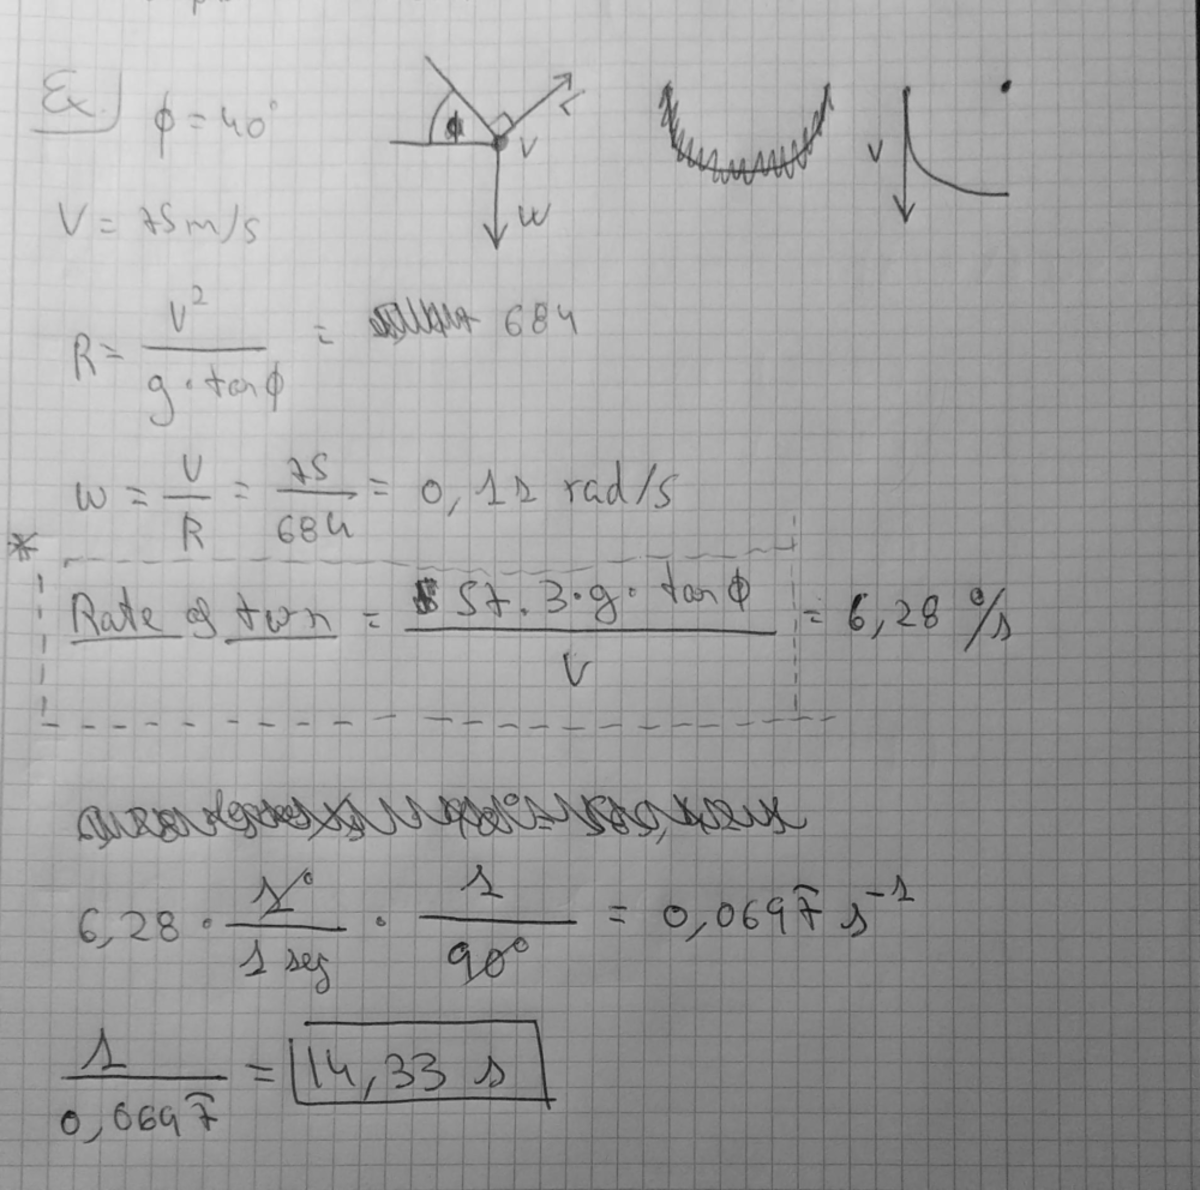 Ex.
ϕ = 40°
V = 75 m/s
ϕ V L W
V
R = V² / (g · tan ϕ) = 684
ω = V / R = 75 / 684 = 0,11 rad/s
* Rate of turn = 57.3 · g · tan ϕ / V = 6,28 °/s
6,28 · 1° / 1 seg · 1 / 90° = 0,0697̂ s⁻¹
1 / 0,0697̂ = 14,33 s